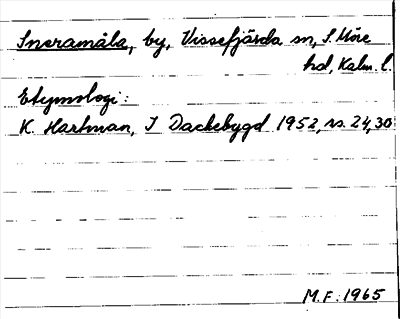 Sneramåla, by, Vissefjärda sn, S. Möre
hd, Kalm. l.
Etymologi:
K. Hartman, I Dackebygd 1952, ss. 24, 30
M.F. 1965